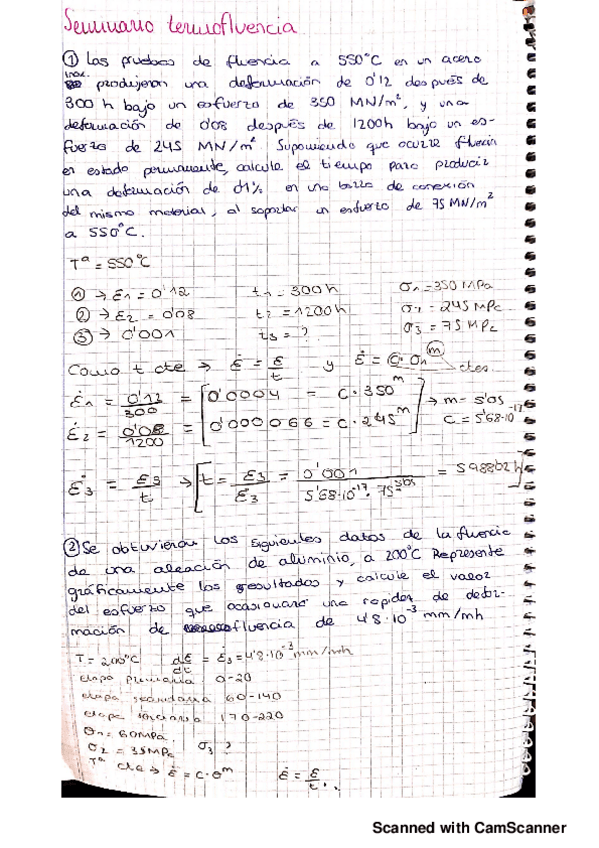 Seminario termofluencia
① Las pruebas de fluencia a 550°C en un acero
inox. produjeron una deformación de 0'12 después de
300 h bajo un esfuerzo de 350 MN/m², y una
deformación de 0'08 después de 1200h bajo un es-
fuerzo de 245 MN/m². Suponiendo que ocurre fluencia
en estado permanente, calcule el tiempo para producir
una deformación de 0'1% en una barra de conexión
del mismo material, al soportar un esfuerzo de 75 MN/m²
a 550°C.
Tª = 550°C
① → ε1 = 0'12 t1 = 300h σ1 = 350 MPa
② → ε2 = 0'08 t2 = 1200h σ2 = 245 MPa
③ → 0'001 t3 = ? σ3 = 75 MPa
Como t cte → ε̇ = ε/t y ε̇ = C·σn^m ctes.
ε̇1 = 0'12/300 = [0'0004 = C·350^m
→ m = 5'05
ε̇2 = 0'08/1200 = [0'000066 = C·245^m
C = 5'68·10^-17
ε̇3 = ε3/t → [t = ε3/ε̇3 = 0'001/5'68·10^-17·75^5'05 = 59882h]
② Se obtuvieron los siguientes datos de la fluencia
de una aleación de aluminio, a 200°C Represente
gráficamente los resultados y calcule el valor
del esfuerzo que ocasionará una rapidez de defor-
mación de fluencia de 4'8·10^-3 mm/mh
T = 200°C dε/dt = ε̇3 = 4'8·10^-3 mm/mh
etapa primaria 0-20
etapa secundaria 60-140
etapa terciaria 170-220
σ1 = 60MPa
σ2 = 35MPa σ3 ?
Tª cte → ε̇ = C·σ^m ε̇ = ε/t
Scanned with CamScanner